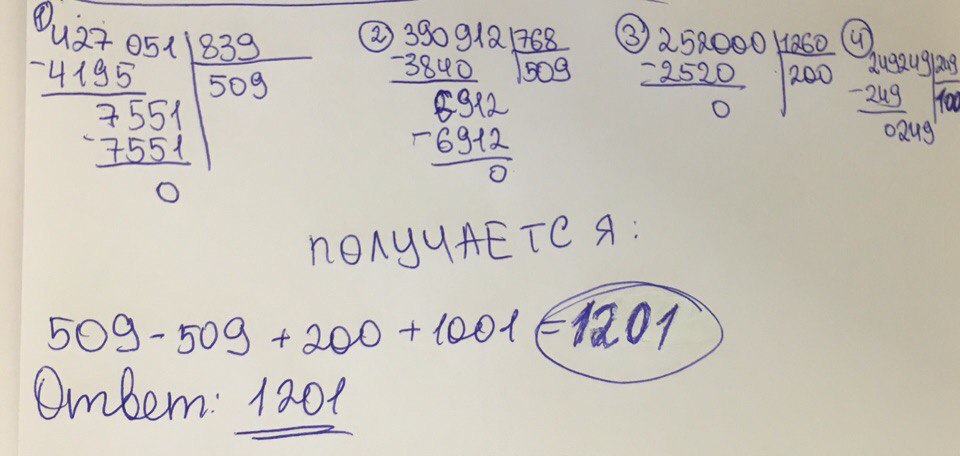 ① 427 051 | 839
-4195 | 509
7551
-7551
0
② 390912 | 768
-3840 | 509
6912
-6912
0
③ 252000 | 1260
-2520 | 200
0
④ 249249 | 249
-249 | 100
0249
ПОЛУЧАЕТСЯ:
509-509+200+1001=1201
Ответ: 1201